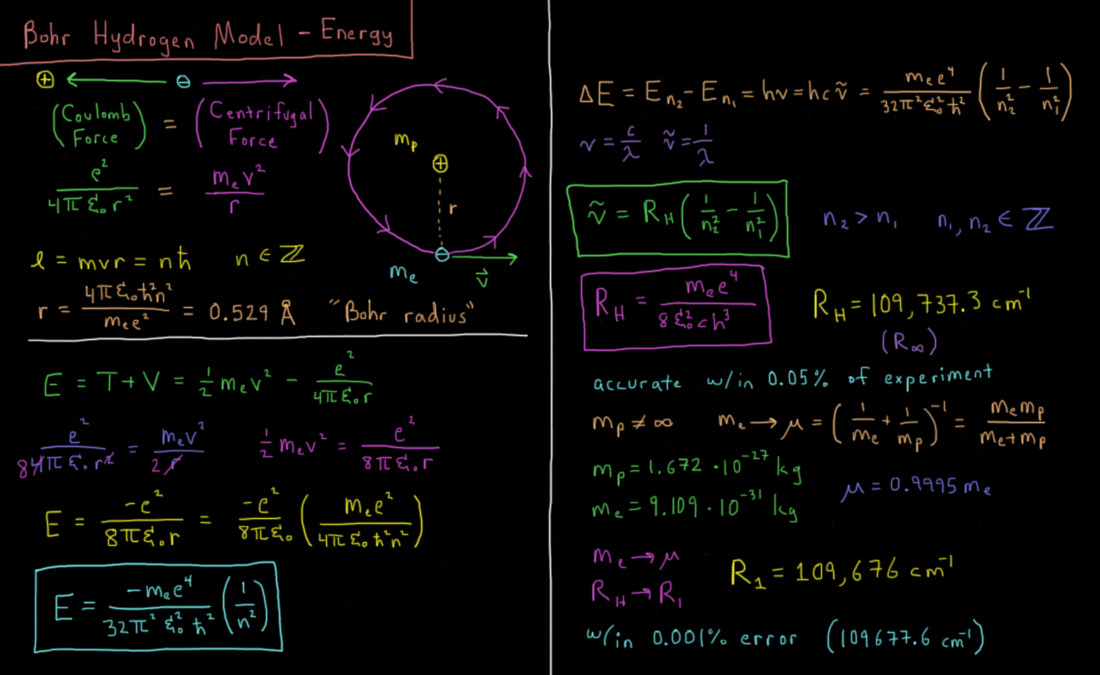 Bohr Hydrogen Model - Energy
⊕ ⊖
(Coulomb Force) = (Centrifugal Force)
e² / 4πε₀r² = mₑv² / r
mₚ ⊕
r
mₑ ⊖ v⃗
ℓ = mvr = nħ n ∈ ℤ
r = 4πε₀ħ²n² / mₑe² = 0.529 Å "Bohr radius"
E = T + V = ½ mₑv² - e² / 4πε₀r
e² / 8 4πε₀r² = mₑv² / 2r ½ mₑv² = e² / 8πε₀r
E = -e² / 8πε₀r = -e² / 8πε₀ (mₑe² / 4πε₀ħ²n²)
E = -mₑe⁴ / 32π²ε₀²ħ² (1/n²)
ΔE = Eₙ₂ - Eₙ₁ = hν = hcν̃ = mₑe⁴ / 32π²ε₀²ħ² (1/n₂² - 1/n₁²)
ν = c/λ ν̃ = 1/λ
ν̃ = R_H (1/n₂² - 1/n₁²) n₂ > n₁ n₁, n₂ ∈ ℤ
R_H = mₑe⁴ / 8ε₀²ch³ R_H = 109,737.3 cm⁻¹
(R∞)
accurate w/in 0.05% of experiment
mₚ ≠ ∞ mₑ → μ = (1/mₑ + 1/mₚ)⁻¹ = mₑmₚ / mₑ+mₚ
mₚ = 1.672 · 10⁻²⁷ kg
mₑ = 9.109 · 10⁻³¹ kg μ = 0.9995 mₑ
mₑ → μ
R_H → R₁ R₁ = 109,676 cm⁻¹
w/in 0.001% error (109677.6 cm⁻¹)